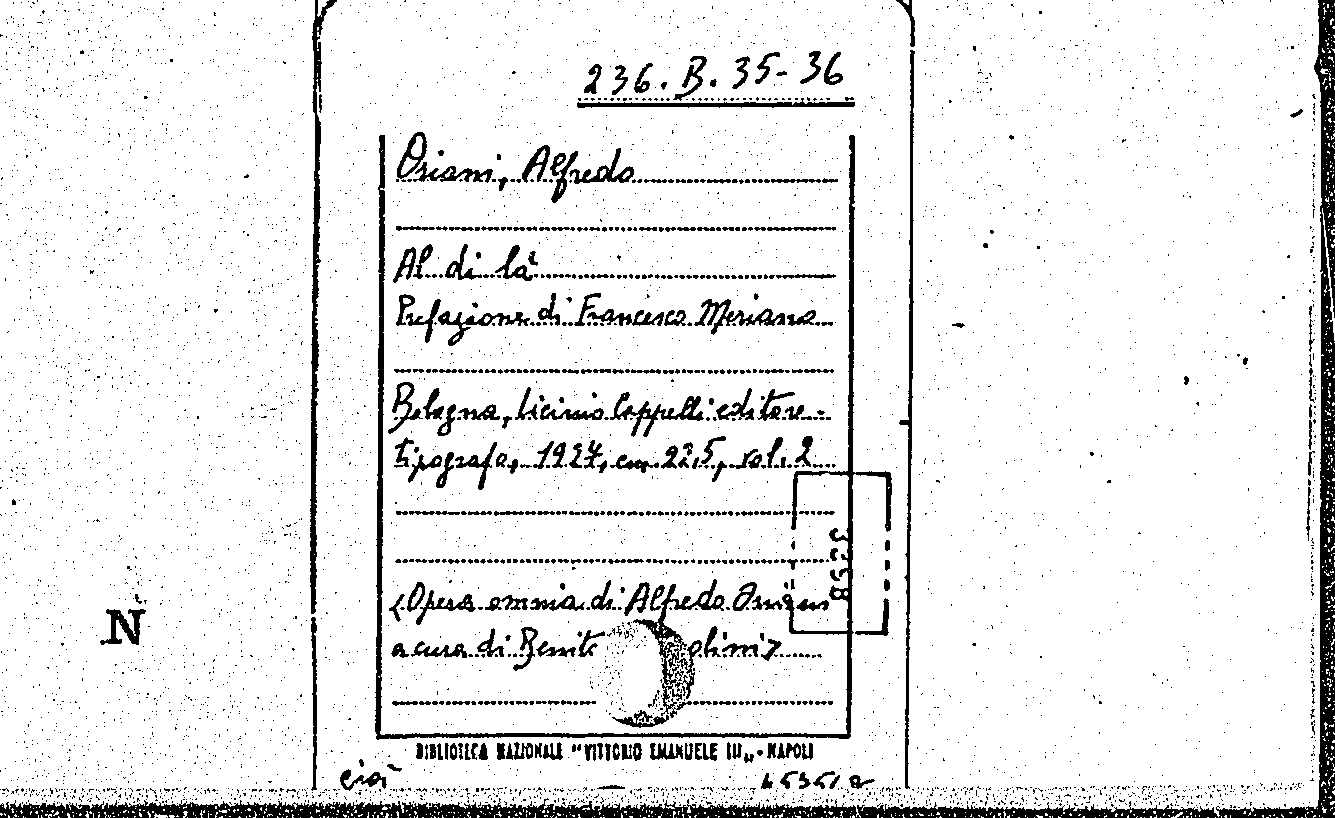 236.B.35-36
Oriani, Alfredo
Al di là
Prefazione di Francesco Meriano
Bologna, Licinio Cappelli editore-
tipografo, 1927, cm. 22,5, vol. 2
<Opera omnia di Alfredo Oriani
a cura di Benito olini>
N
BIBLIOTECA NAZIONALE "VITTORIO EMANUELE III„ - NAPOLI